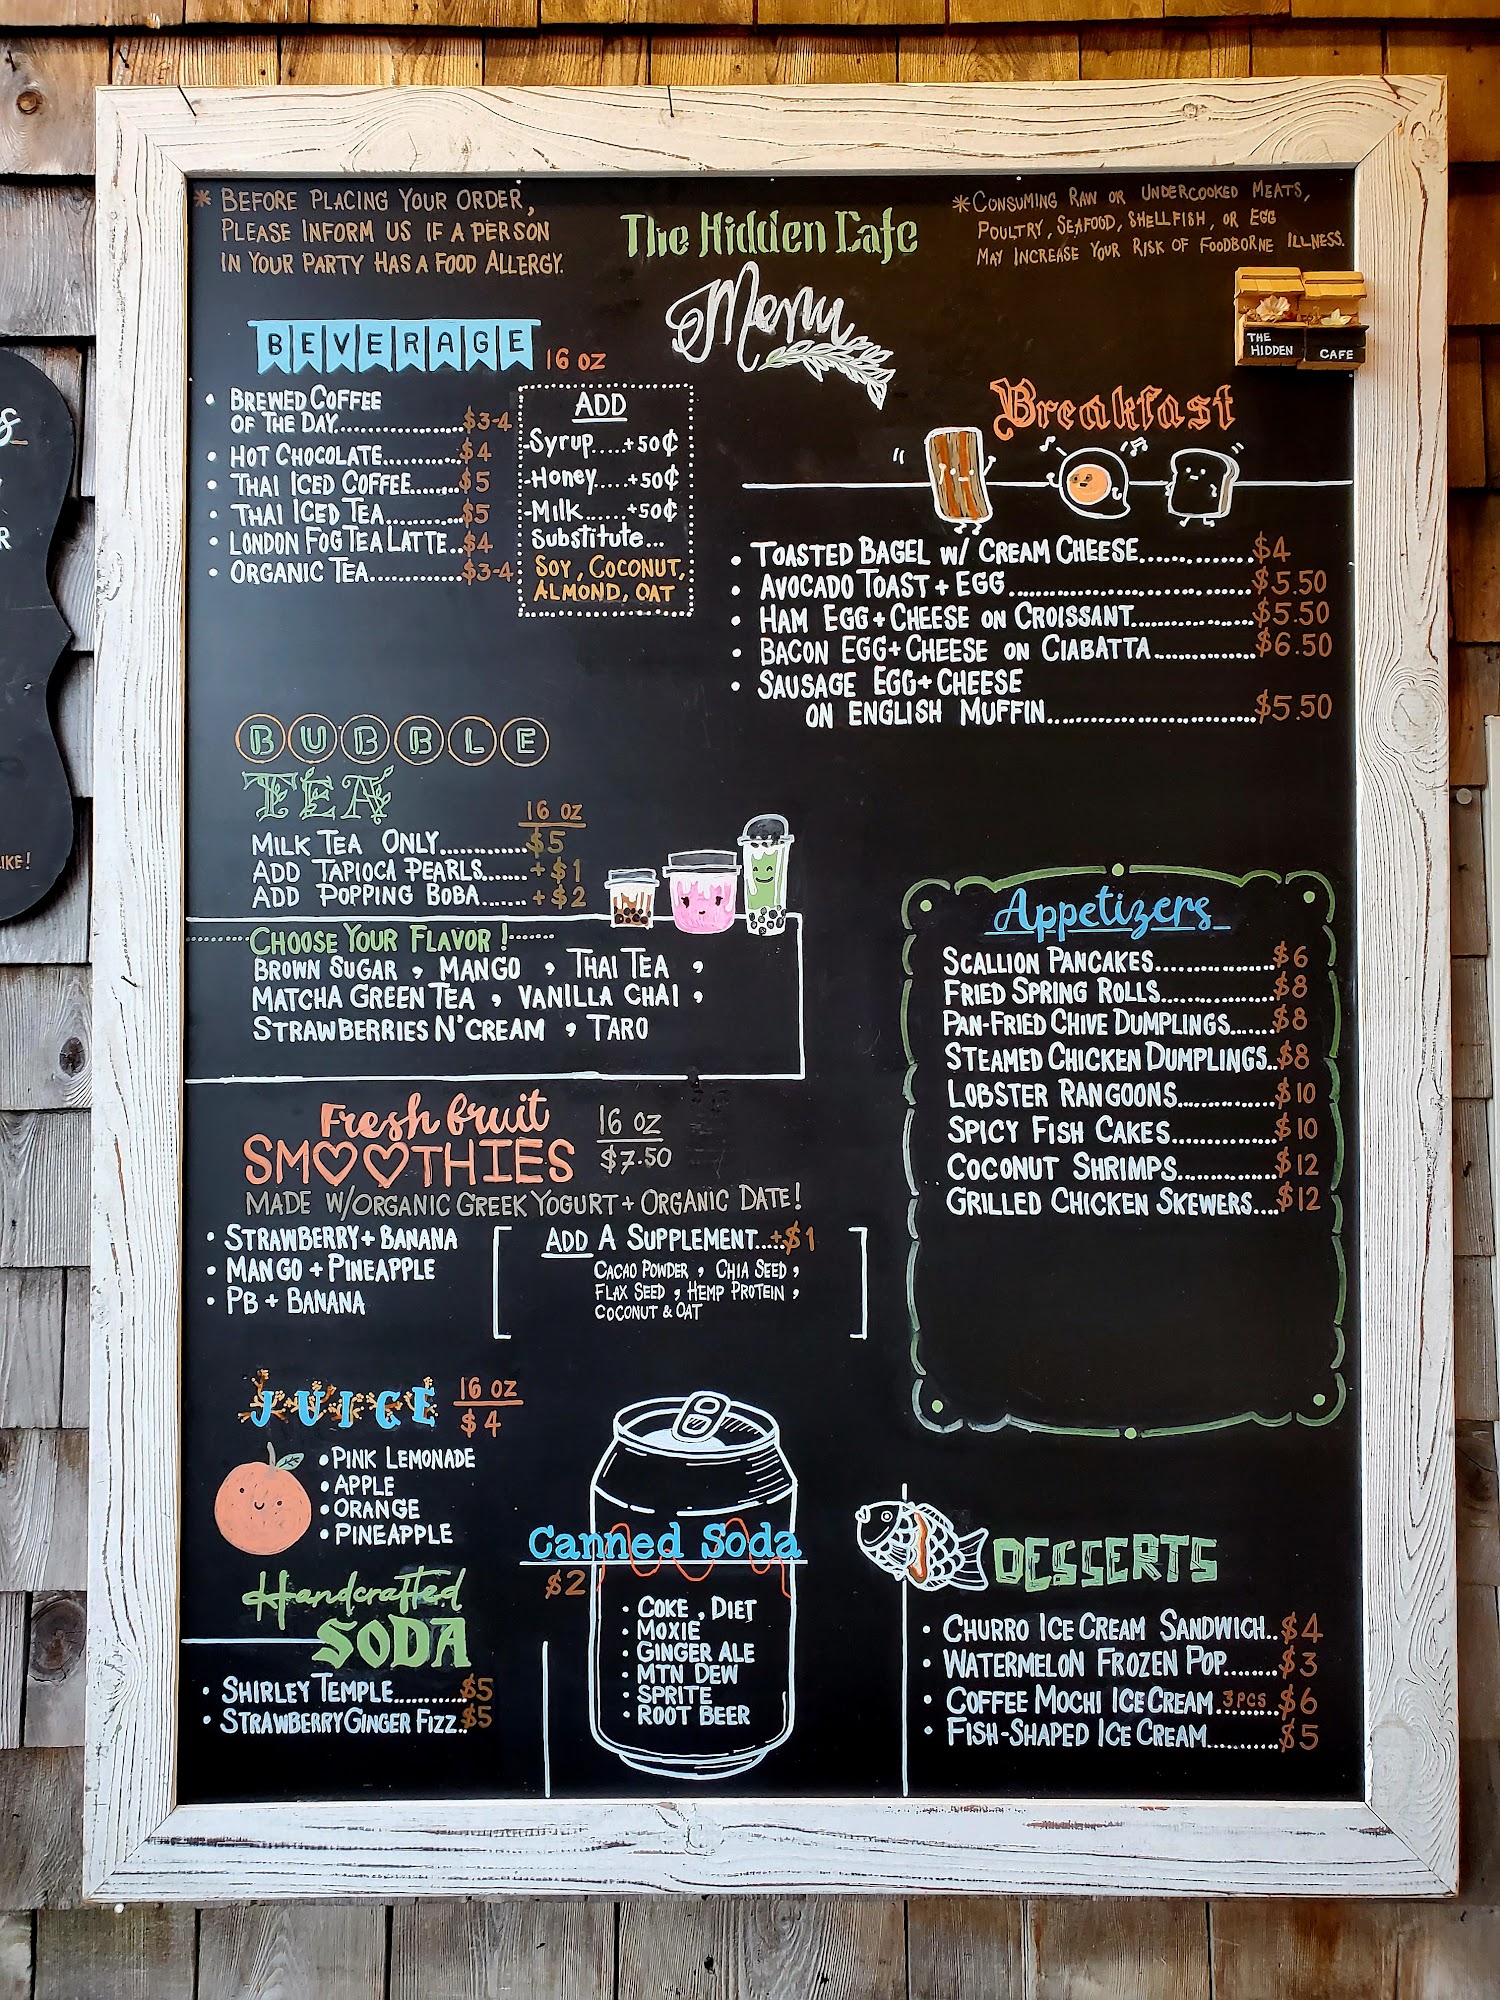 * BEFORE PLACING YOUR ORDER,
PLEASE INFORM US IF A PERSON
IN YOUR PARTY HAS A FOOD ALLERGY.
The Hidden Cafe
Menu
*CONSUMING RAW OR UNDERCOOKED MEATS,
POULTRY, SEAFOOD, SHELLFISH, OR EGG
MAY INCREASE YOUR RISK OF FOODBORNE ILLNESS.
THE
HIDDEN CAFE
BEVERAGE 16 OZ
• BREWED COFFEE
OF THE DAY....................$3-4
• HOT CHOCOLATE............$4
• THAI ICED COFFEE........$5
• THAI ICED TEA............$5
• LONDON FOG TEA LATTE..$4
• ORGANIC TEA..............$3-4
ADD
-Syrup.....+50¢
-Honey.....+50¢
-Milk......+50¢
Substitute...
SOY, COCONUT,
ALMOND, OAT
Breakfast
• TOASTED BAGEL W/ CREAM CHEESE..............$4
• AVOCADO TOAST + EGG..............................$5.50
• HAM EGG + CHEESE ON CROISSANT................$5.50
• BACON EGG + CHEESE ON CIABATTA..............$6.50
• SAUSAGE EGG + CHEESE
ON ENGLISH MUFFIN..........................$5.50
BUBBLE
TEA
16 OZ
MILK TEA ONLY.............$5
ADD TAPIOCA PEARLS.......+$1
ADD POPPING BOBA.......+$2
CHOOSE YOUR FLAVOR!
BROWN SUGAR, MANGO, THAI TEA,
MATCHA GREEN TEA, VANILLA CHAI,
STRAWBERRIES N' CREAM, TARO
Appetizers
SCALLION PANCAKES..................$6
FRIED SPRING ROLLS.................$8
PAN-FRIED CHIVE DUMPLINGS.......$8
STEAMED CHICKEN DUMPLINGS..$8
LOBSTER RANGOONS..............$10
SPICY FISH CAKES...............$10
COCONUT SHRIMPS..............$12
GRILLED CHICKEN SKEWERS....$12
Fresh fruit
SMOOTHIES
16 OZ
$7.50
MADE W/ORGANIC GREEK YOGURT + ORGANIC DATE!
• STRAWBERRY + BANANA
• MANGO + PINEAPPLE
• PB + BANANA
ADD A SUPPLEMENT.....+$1
CACAO POWDER, CHIA SEED,
FLAX SEED, HEMP PROTEIN,
COCONUT & OAT
JUICE
16 OZ
$4
• PINK LEMONADE
• APPLE
• ORANGE
• PINEAPPLE
Handcrafted
SODA
• SHIRLEY TEMPLE............$5
• STRAWBERRY GINGER FIZZ..$5
Canned Soda
$2
• COKE, DIET
• MOXIE
• GINGER ALE
• MTN DEW
• SPRITE
• ROOT BEER
DESSERTS
• CHURRO ICE CREAM SANDWICH..$4
• WATERMELON FROZEN POP........$3
• COFFEE MOCHI ICE CREAM 3PCS $6
• FISH-SHAPED ICE CREAM..........$5